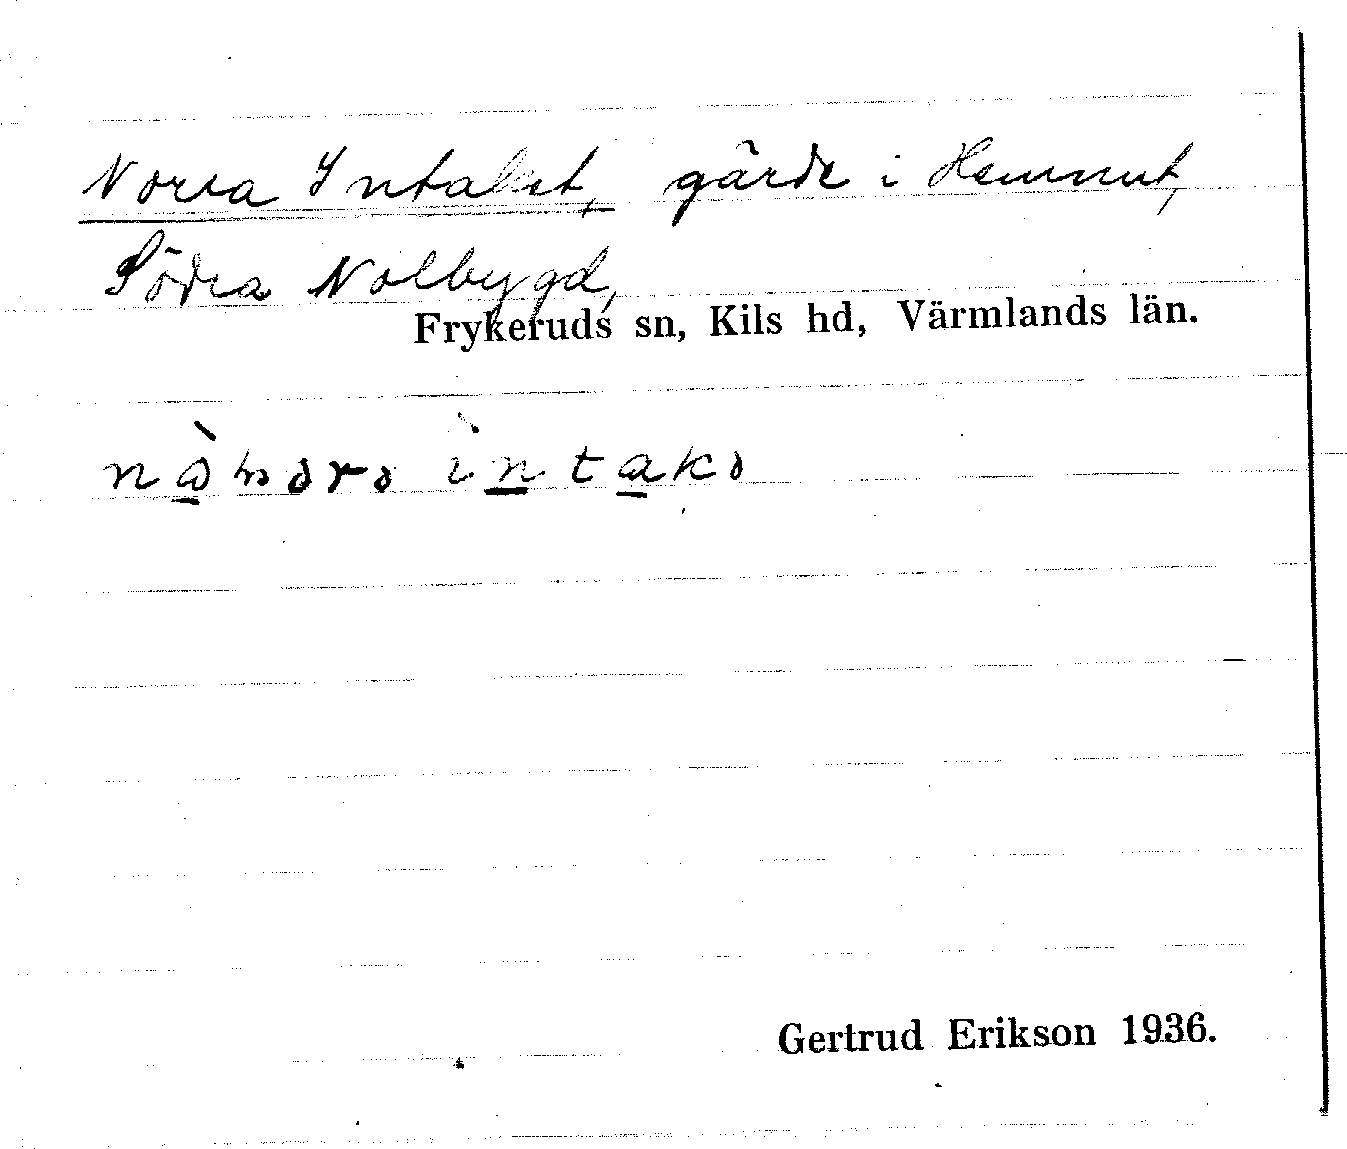 Norra Intaket, gärde i Hemmet,
Södra Nolbygd,
Frykeruds sn, Kils hd, Värmlands län.
Gertrud Erikson 1936.